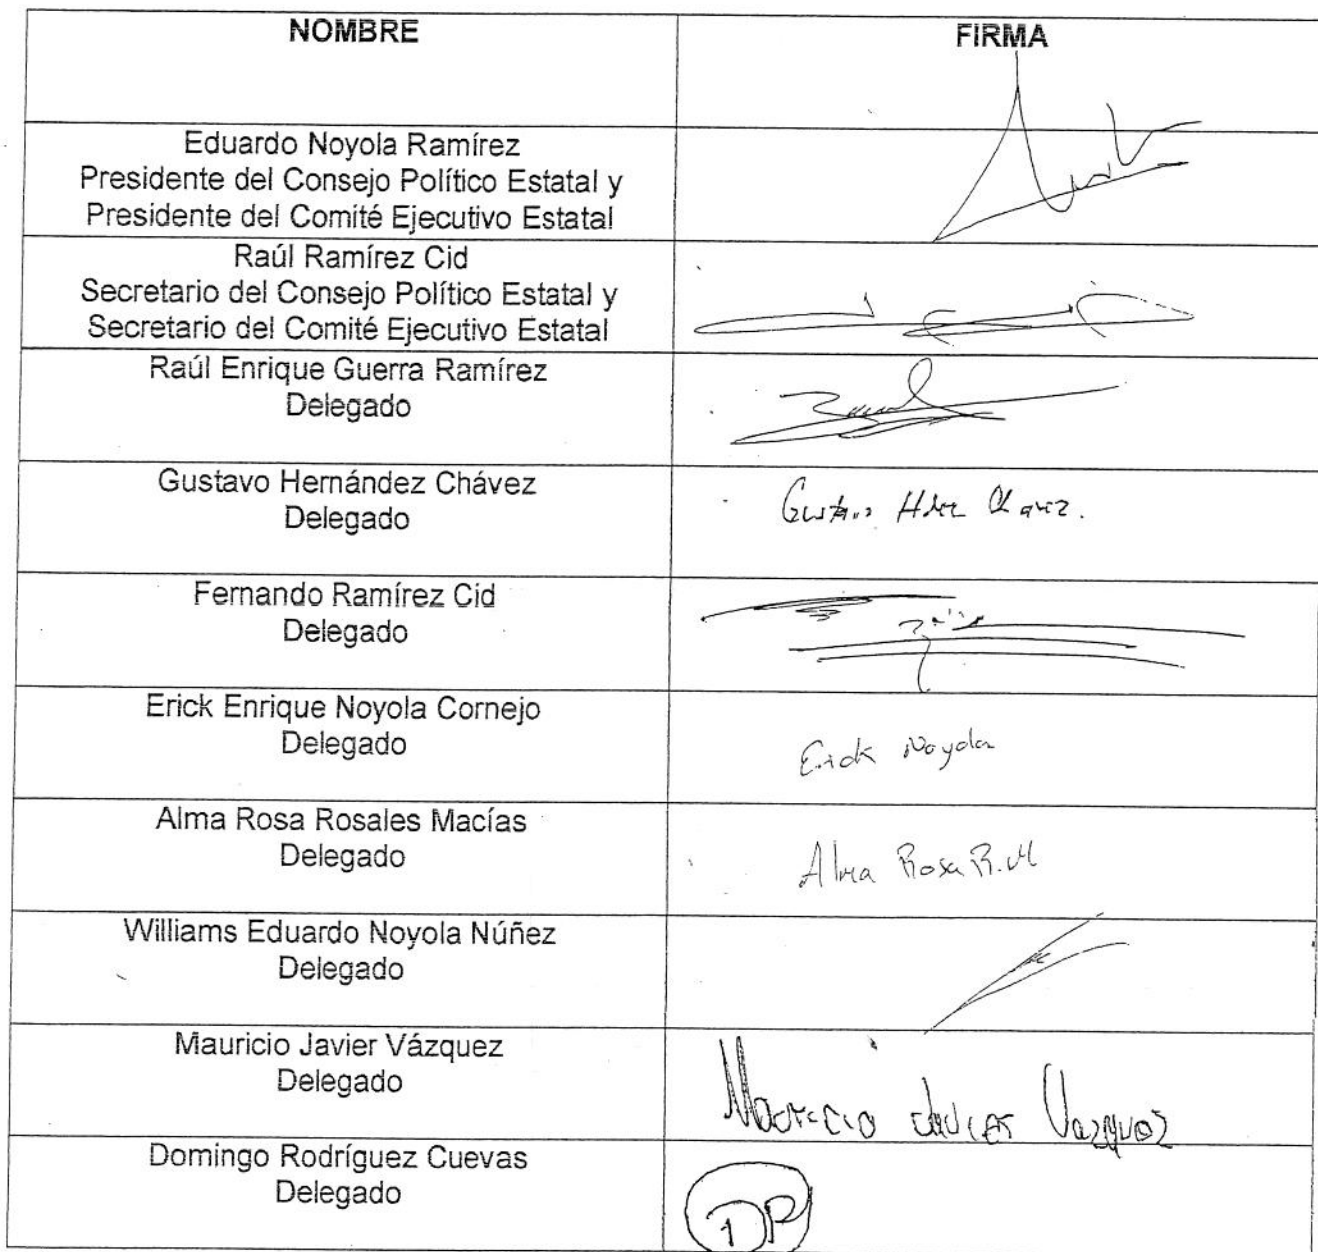 NOMBRE
FIRMA
Eduardo Noyola Ramírez
Presidente del Consejo Político Estatal y
Presidente del Comité Ejecutivo Estatal
Raúl Ramírez Cid
Secretario del Consejo Político Estatal y
Secretario del Comité Ejecutivo Estatal
Raúl Enrique Guerra Ramírez
Delegado
Gustavo Hernández Chávez
Delegado
Gustavo Hdez Chavez.
Fernando Ramírez Cid
Delegado
Erick Enrique Noyola Cornejo
Delegado
Erick Noyola
Alma Rosa Rosales Macías
Delegado
Alma Rosa R.M
Williams Eduardo Noyola Núñez
Delegado
Mauricio Javier Vázquez
Delegado
Mauricio Javier Vazquez
Domingo Rodríguez Cuevas
Delegado